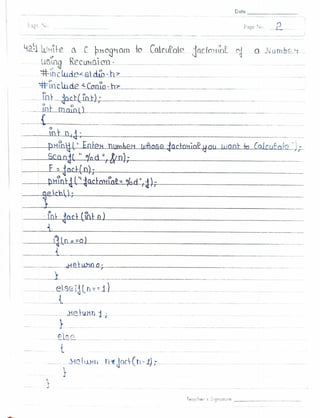 Date
Page No.
Page No. 2
Q2.) Write a C program to Calculate factorial of a Number
using Recursion-
#include<stdio.h>
#include<Conio.h>
int fact(int);
int main()
{
int n,f;
printf(" Enter number whose factorial you want to Calculate");
Scanf(" %d", &n);
F = fact(n);
printf("factorial= %d",f);
getch();
}
int fact(int n)
{
if(n==0)
{
return 0;
}
else if(n==1)
{
return 1;
}
else
{
return n*fact(n-1);
}
}
Teacher's Signature